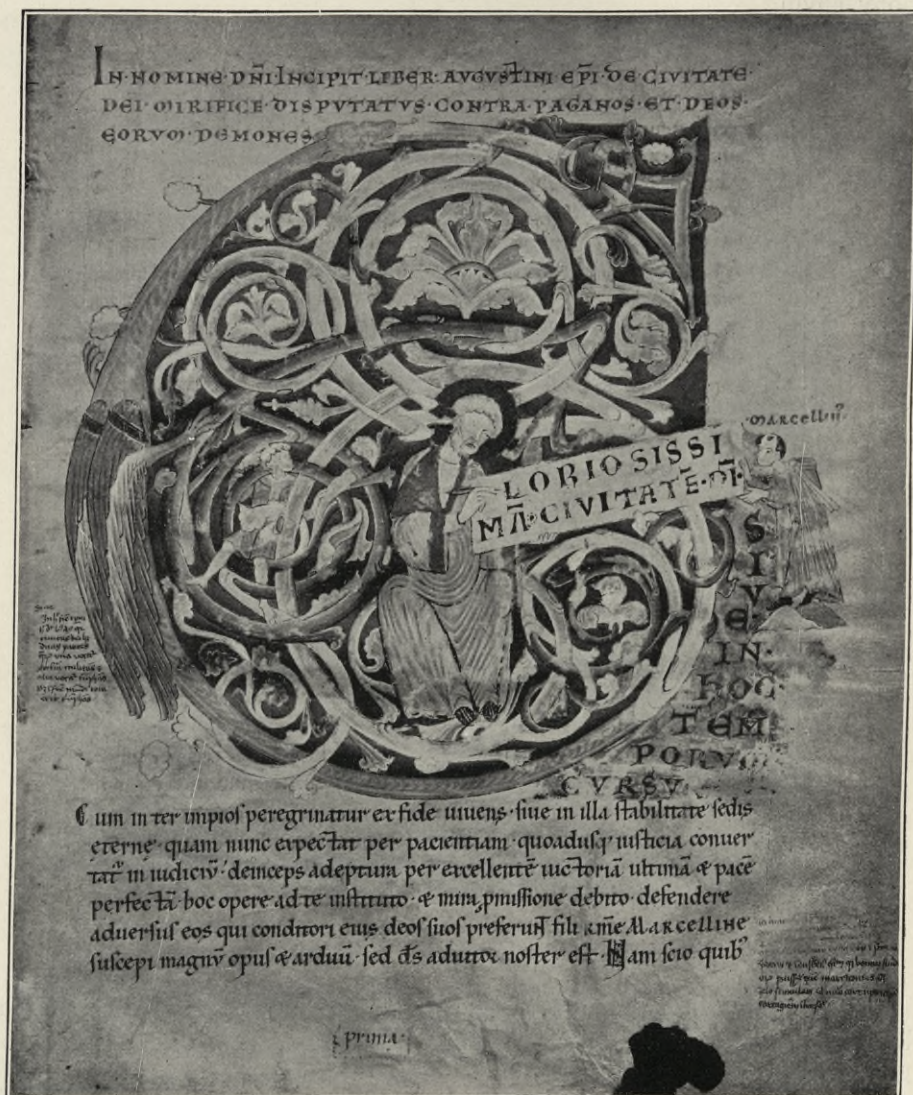 IN·NOMINE·DN̄I·INCIPIT·LIBER·AVGVSTINI EP̄I·DE·CIVITATE·
DEI·MIRIFICE·DISPVTATVS·CONTRA·PAGANOS·ET·DEOS·
EORVM·DEMONES
MARCELLIN᾽
LORIOSISSI
MĀ·CIVITATĒ·DĪ·
S
I
V
E·
IN·
HOC·
TEM
PORVM
CVRSV
Cum inter impios peregrinatur ex fide uiuens· siue in illa stabilitate sedis
eterne· quam nunc expectat per pacientiam· quoadusq; iusticia conuer
tat᷑ in iudiciū· deinceps adeptura per excellentē uictoriā ultimā & pacē
perfectā· hoc opere ad te instituto· & mihi ꝓmissione debito· defendere
aduersus eos qui conditori eius deos suos preferunt fili k̄me Marcelline
suscepi magnū opus & arduū· sed d̄s adiutor noster est· Nam scio quib᾽
prima·